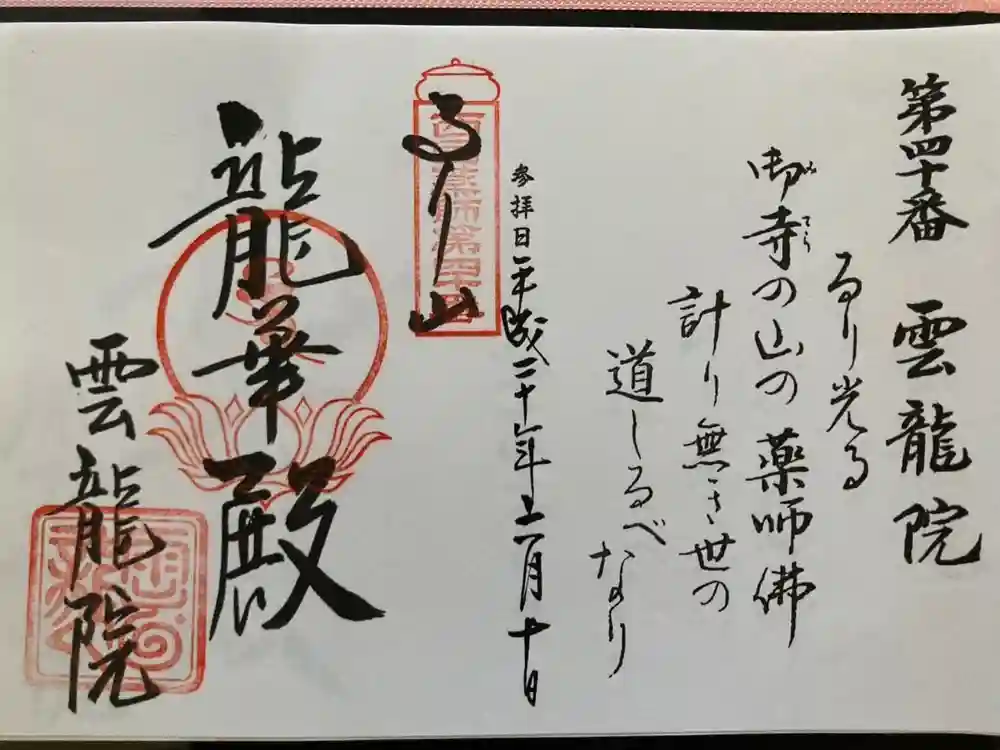 第四十番 雲龍院
るり光る
御寺の山の薬師佛
てら
計り無き世の
道しるべなり
参拝日平成二十年十一月十日
るり山
西国薬師第四十番
龍華殿
雲龍院